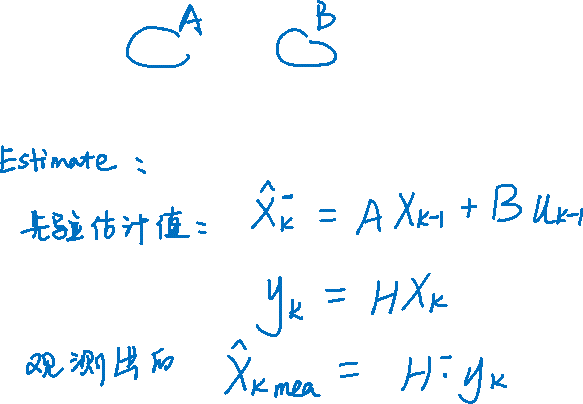 A B
Estimate:
先验估计值: X̂ₖ⁻ = A Xₖ₋₁ + B uₖ₋₁
yₖ = H Xₖ
观测出的 X̂ₖ mea = H⁻ yₖ